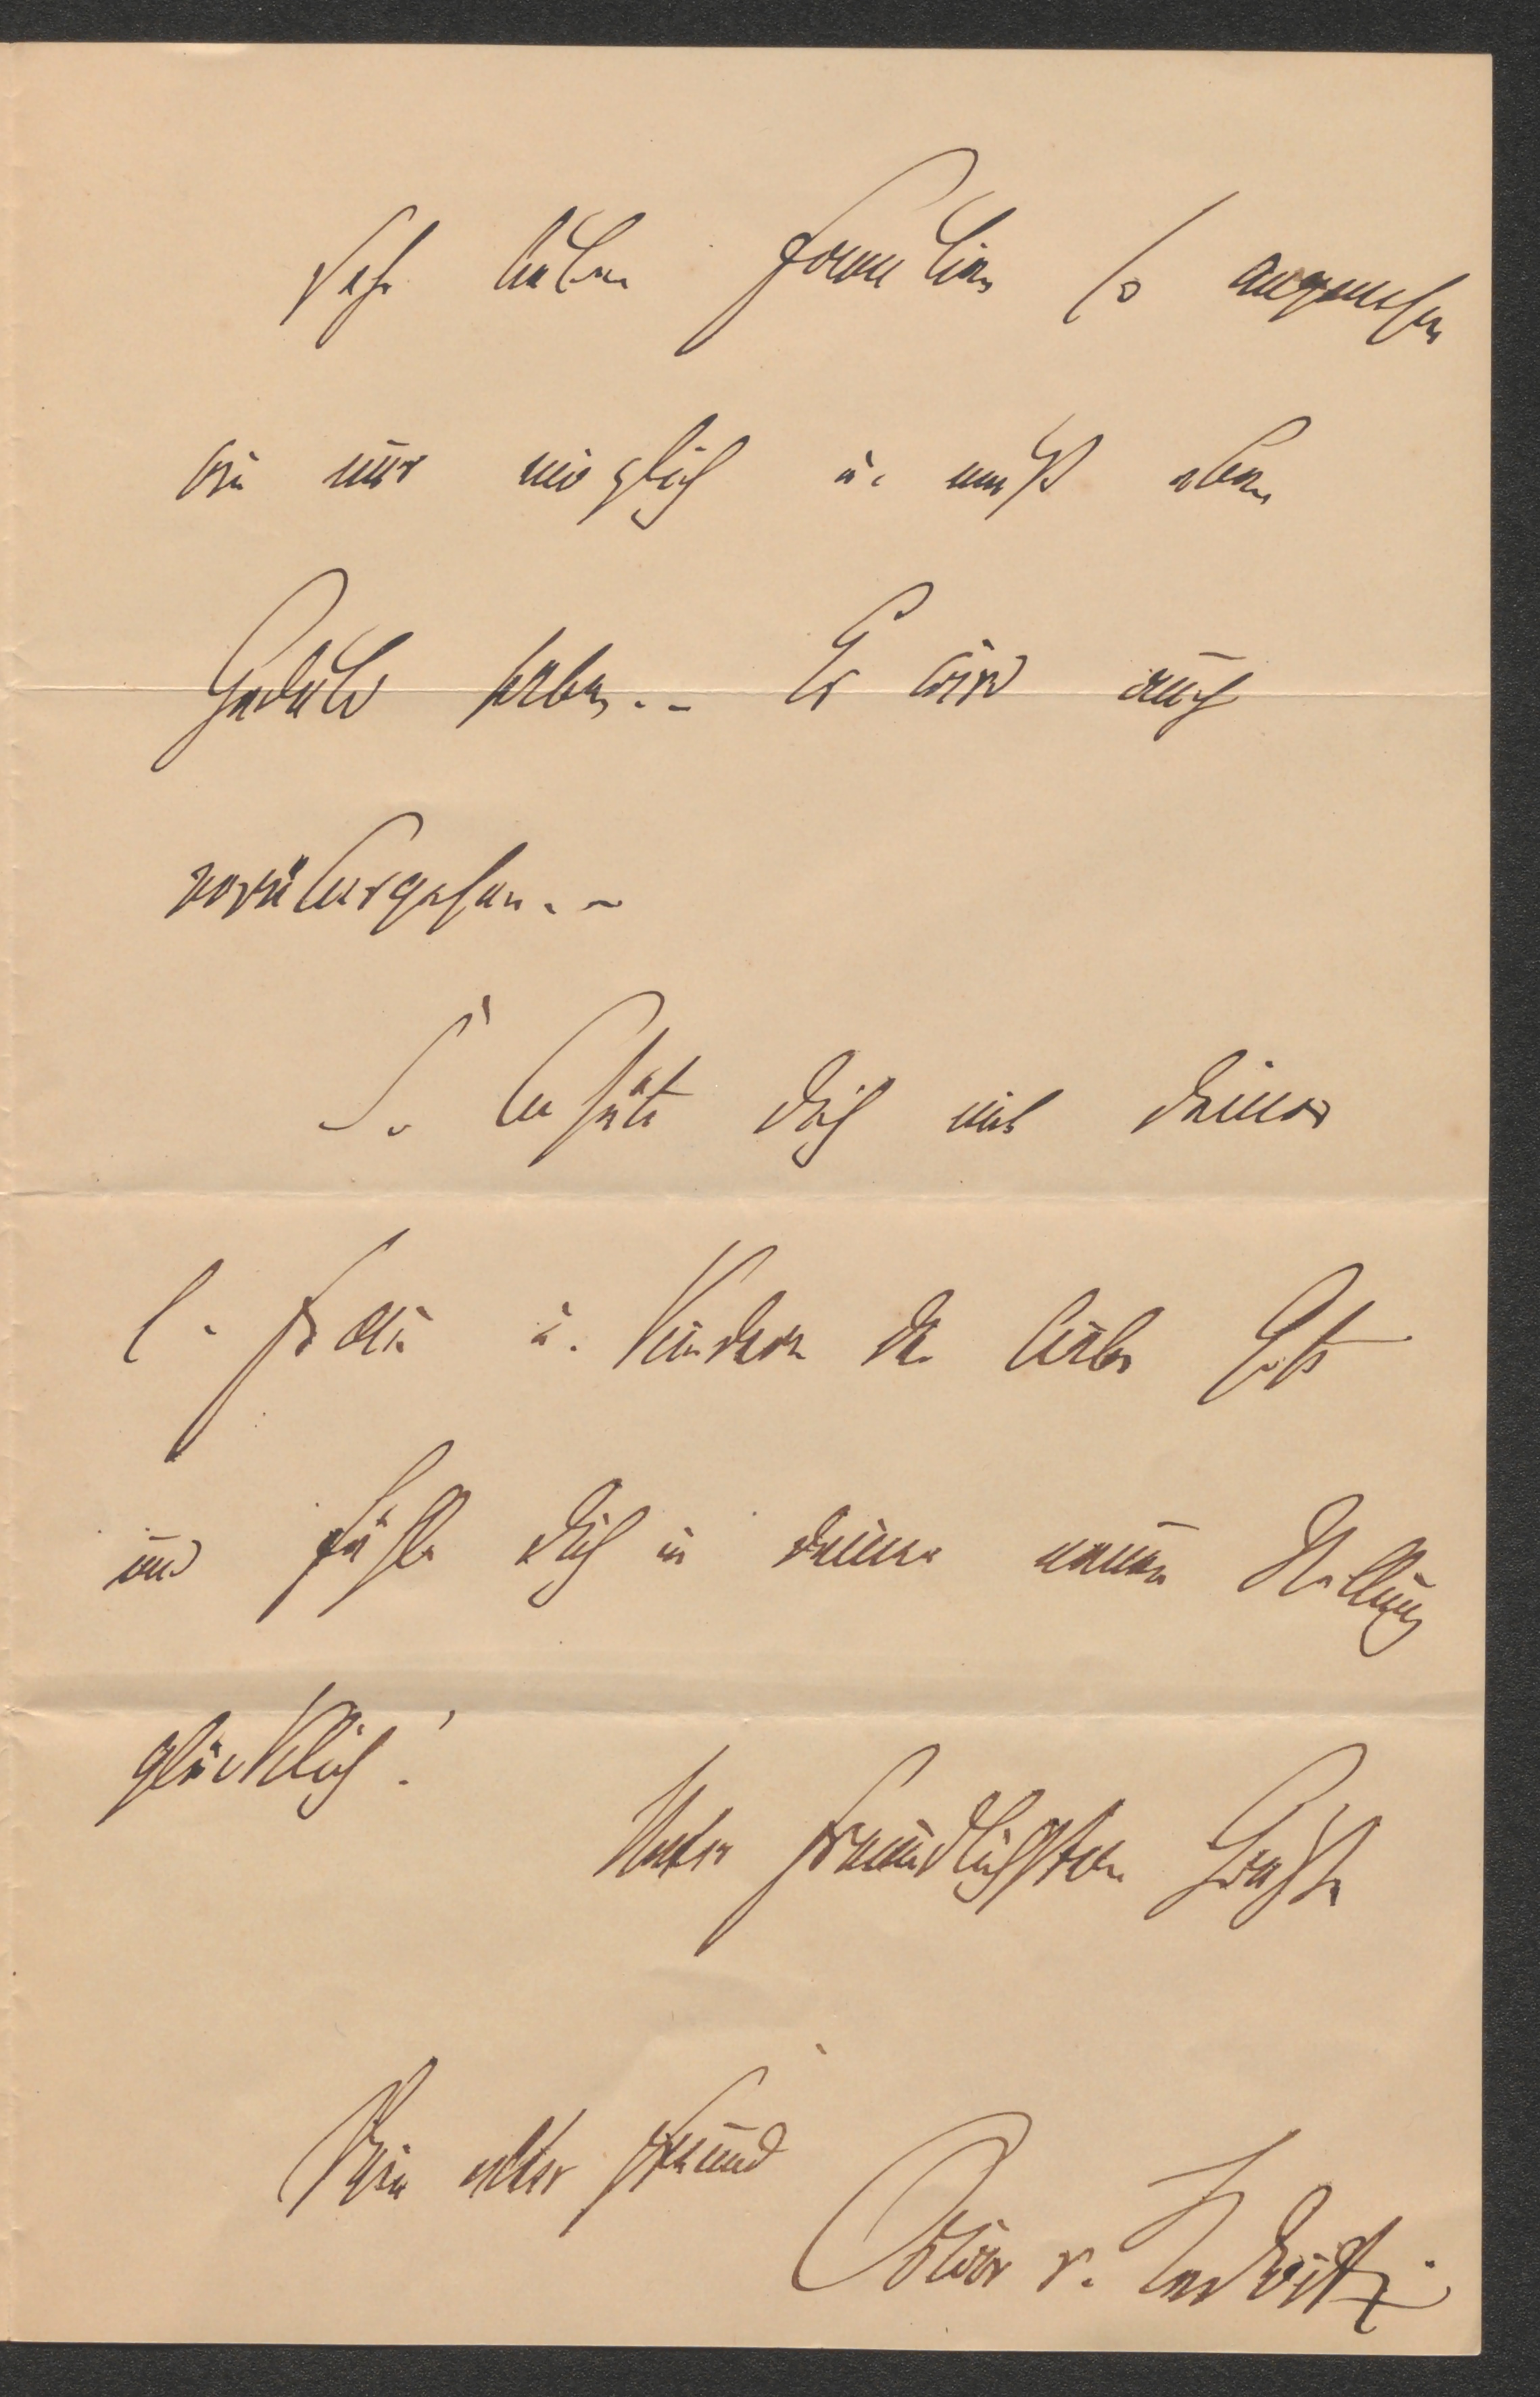 sehr lieben Familie so angenehm
wie nur möglich u. muß eben
Geduld haben. – Es wird auch
vorübergehen. –
So behüte dich mit deiner
l. Frau u. Kindern der liebe Gott
und fühle dich in deiner neuen Stellung
glücklich!
Unter freundlichsten Grüßen
Dein alter Freund
Oskar v. Redwitz